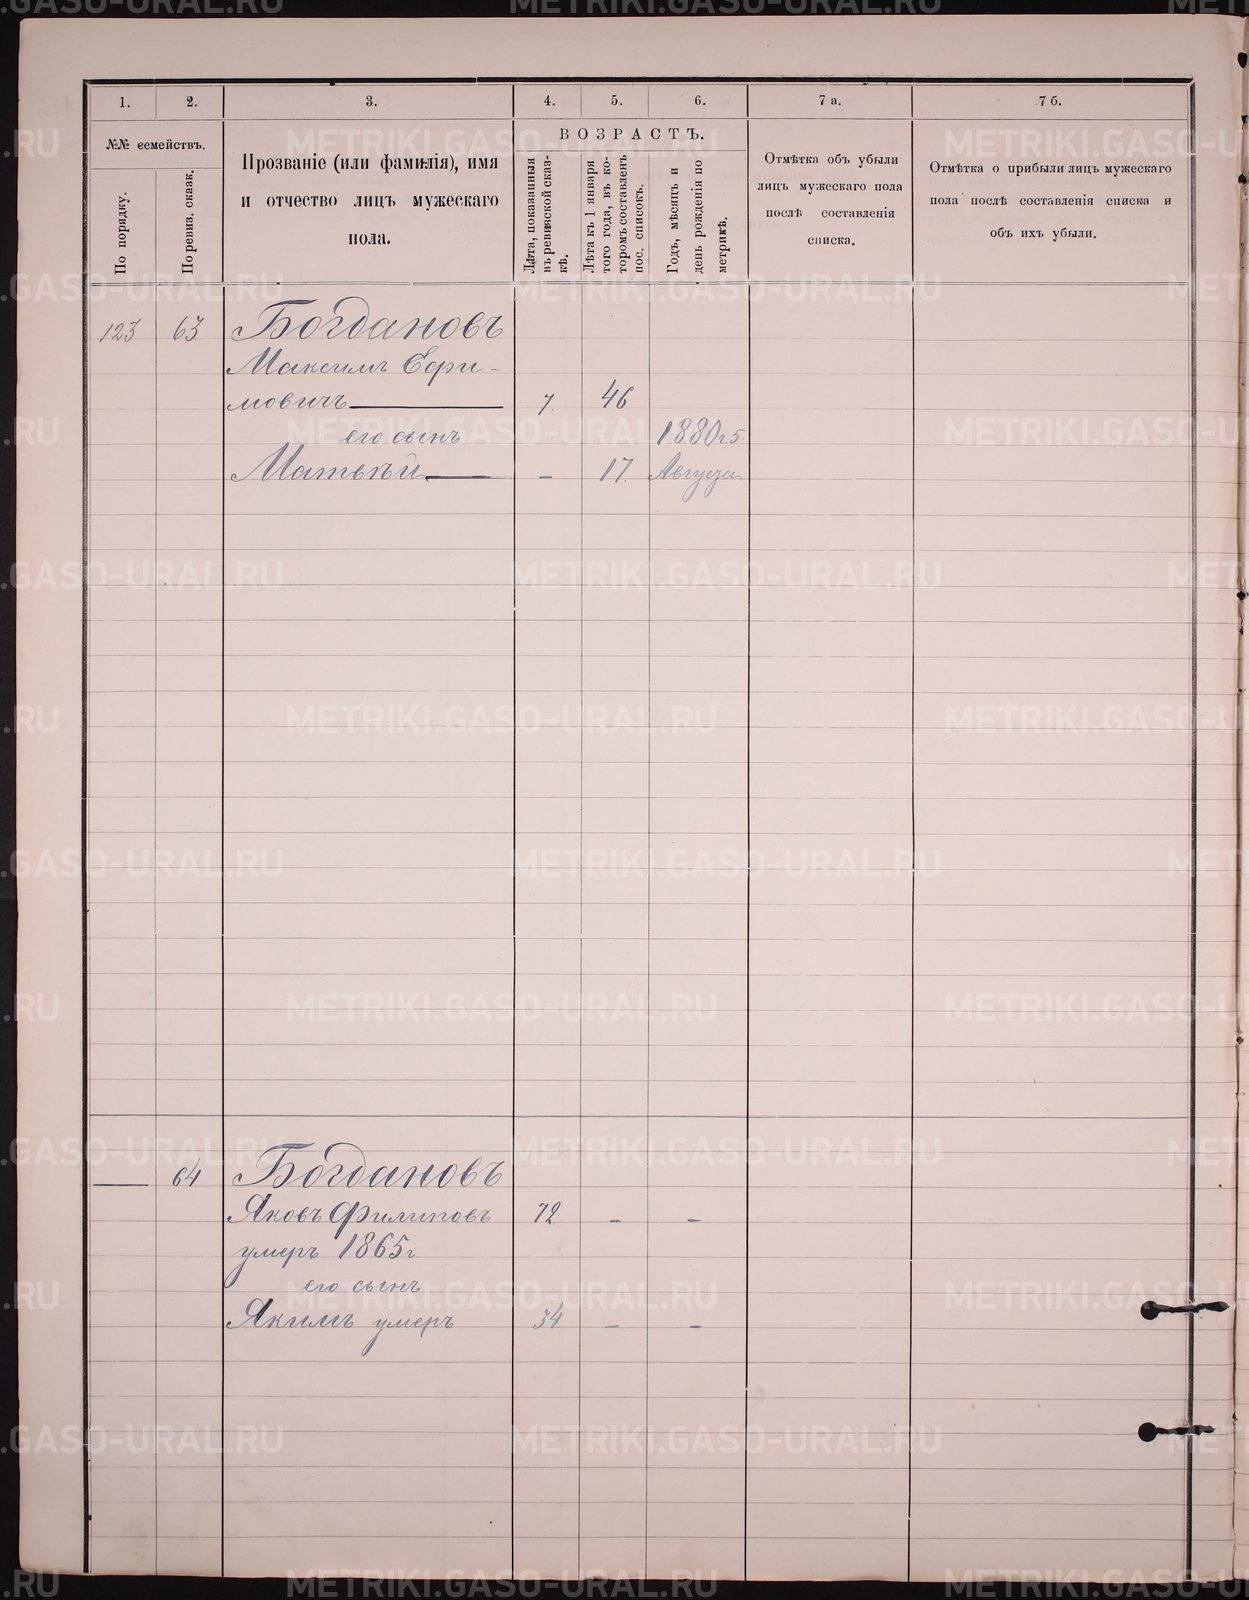 1. 2. 3. 4. 5. 6. 7 а. 7 б.
№№ семействъ.
По порядку.
По ревиз. сказк.
Прозваніе (или фамилія), имя
и отчество лицъ мужескаго
пола.
ВОЗРАСТЪ.
Лѣта, показанныя
въ ревизской сказ-
кѣ.
Лѣта къ 1 января
того года, въ ко-
торомъ составленъ
пос. списокъ.
Годъ, мѣсяцъ и
день рожденія по
метрикѣ.
Отмѣтка объ убыли
лицъ мужескаго пола
послѣ составленія
списка.
Отмѣтка о прибыли лицъ мужескаго
пола послѣ составленія списка и
объ ихъ убыли.
123 63 Богдановъ
Максимъ Ефи-
мовичъ 7. 46.
его сынъ 1880 г. 5
Матвѣй — 17. Августа
— 64 Богдановъ
Яковъ Филиповъ 72 — —
умеръ 1865 г.
его сынъ
Якимъ умеръ 34 — —
METRIKI.GASO-URAL.RU